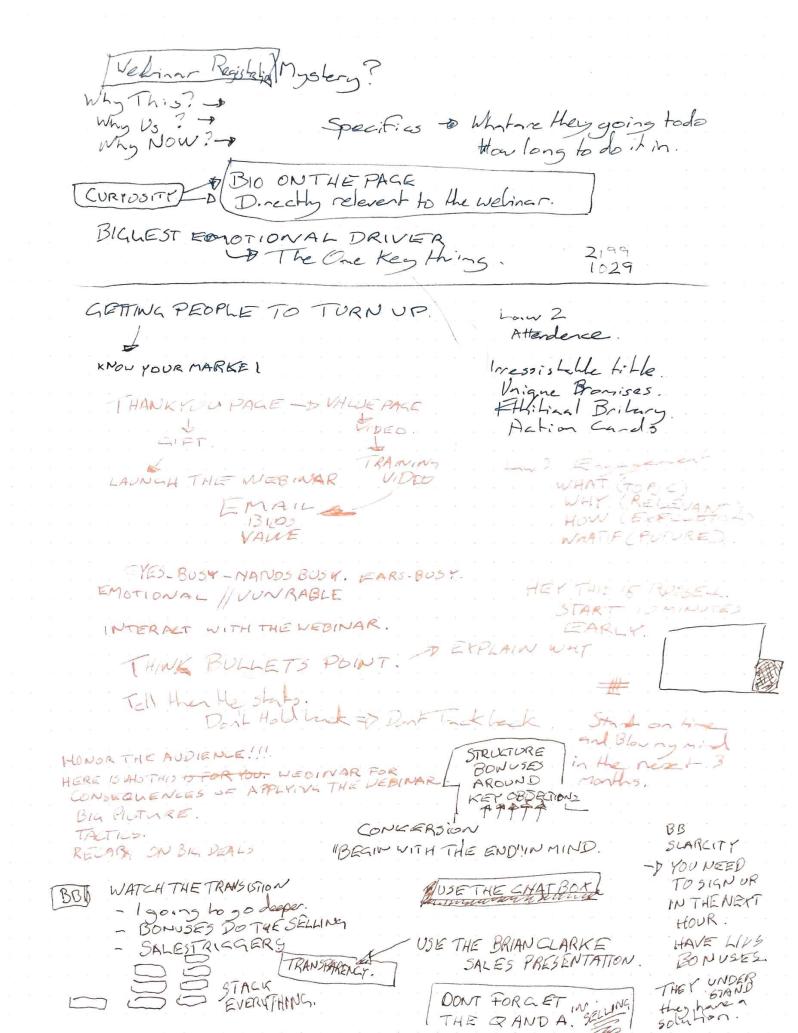 Webinar Registration Mystery?
Why This? →
Why Us ? →
Why NOW? →
Specifics → What are they going to do
How long to do it in.
CURIOSITY
BIO ON THE PAGE
Directly relevent to the webinar.
BIGGEST EMOTIONAL DRIVER
→ The One Key thing.
2,199
1029
GETTING PEOPLE TO TURN UP.
KNOW YOUR MARKET
Law 2
Attendence.
Irressistable title.
Unique Promises.
Action Cards
THANKYOU PAGE → VALUE PAGE
GIFT.
VIDEO.
LAUNCH THE WEBINAR
TRAINING
VIDEO
EMAIL
VALUE
Engagement
WHAT (TOPIC)
WHY (RELEVANT)
HOW
WHAT IF (FUTURE).
BUSY - HANDS BUSY. EARS-BUSY.
EMOTIONAL // VUNRABLE
HEY THIS IS RUSSELL.
START 10 MINUTES
EARLY.
INTERACT WITH THE WEBINAR.
THINK BULLETS POINT. → EXPLAIN WHY
Tell them the starts.
Don't Hold back => Dont Track back.
Start on time
and Blow my mind
in the next 3
Months.
HONOR THE AUDIENCE!!!
HERE IS WHO THIS IS FOR YOU. WEBINAR FOR
CONSEQUENCES OF APPLYING THE WEBINAR
BIG PICTURE.
TACTICS.
ON BIG DEALS
STRUCTURE
BONUSES
AROUND
KEY OBJECTIONS
CONVERSION
"BEGIN WITH THE END" IN MIND.
BB
SCARCITY
→ YOU NEED
TO SIGN UP
IN THE NEXT
HOUR.
HAVE LIVE
BONUSES.
THEY UNDER
STAND
they have a
solution.
BB
WATCH THE TRANSISTION
- I going to go deeper.
- BONUSES DO THE SELLING
- SALES TRIGGERS
TRANSPARENCY.
STACK
EVERYTHING.
USE THE CHATBOX.
USE THE BRIAN CLARKE
SALES PRESENTATION.
DONT FORGET IN SELLING
THE Q AND A.